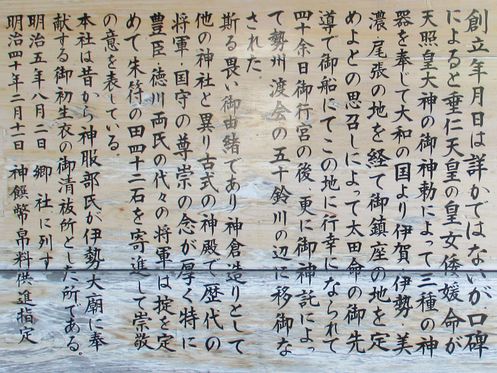 創立年月日は詳かではないが口碑
によると垂仁天皇の皇女倭媛命が
天照皇大神の御神勅によって三種の神
器を奉じて大和の国より伊賀伊勢美
濃尾張の地を経て御鎮座の地を定
めよとの思召しによって太田命の御先
導で御船にてこの地に行幸になられて
四十余日御行宮の後更に御神託によっ
て勢州渡会の五十鈴川の辺に移御な
された
斯る畏い御由緒であり神倉造りとして
他の神社と異り古式の神殿で歴代の
将軍国守の尊崇の念が厚く特に
豊臣徳川両氏の代々の将軍は掟を定
めて朱符の田四十二石を寄進して崇敬
の意を表している。
本社は昔から神服部氏が伊勢大廟に奉
献する御初生衣の御清祓所とした所である。
明治五年八月二日 郷社に列す
明治四十年二月十一日 神饌幣帛料供進指定